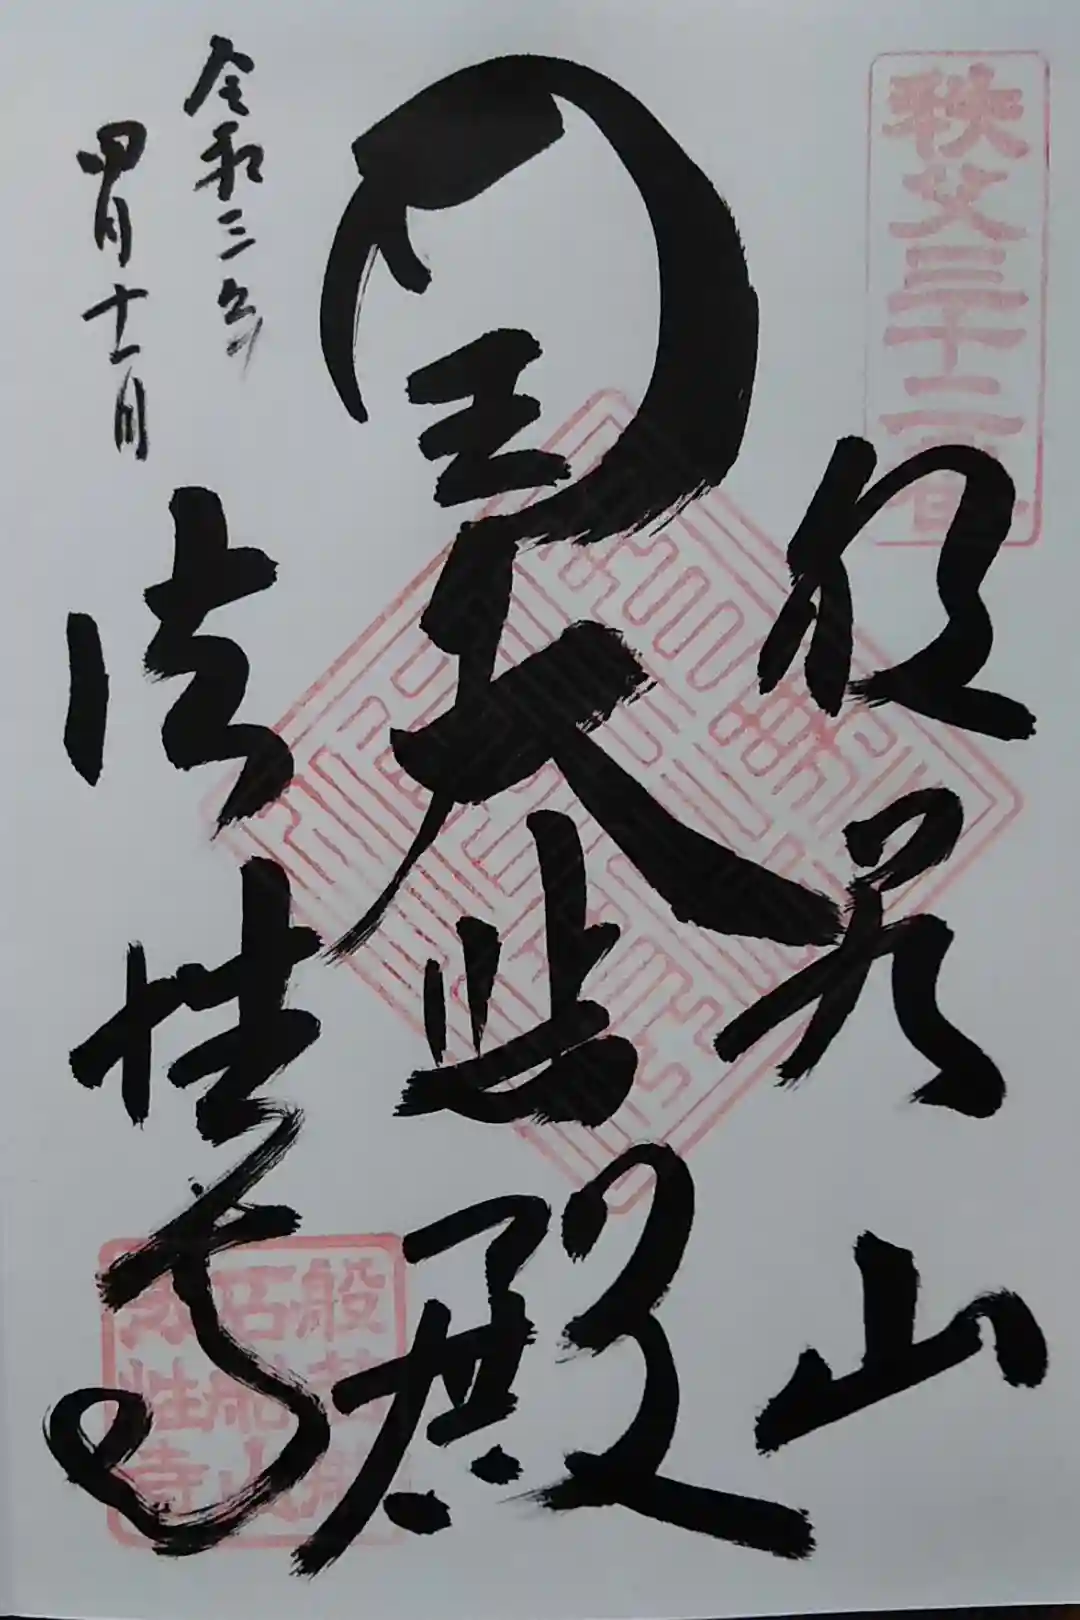 秩父三十二番
般若山
大悲殿
令和三年
四月十一日
法性寺
般若
石船山
法性寺